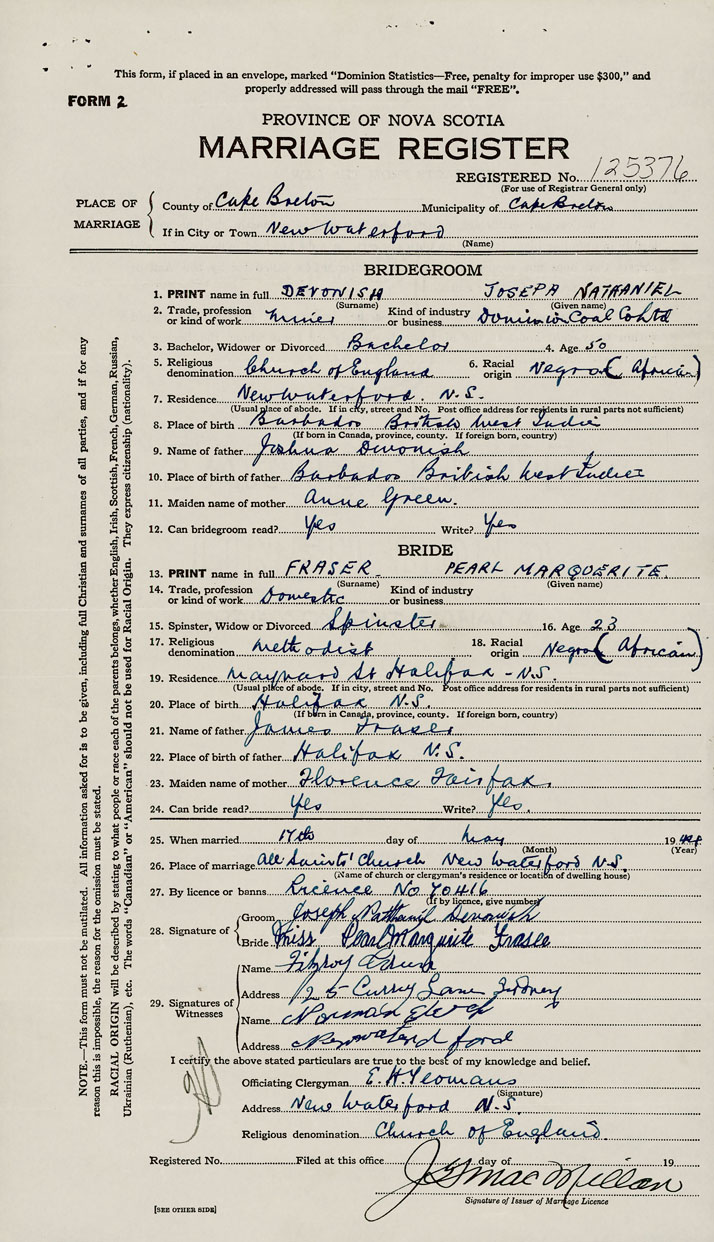 This form, if placed in an envelope, marked “Dominion Statistics—Free, penalty for improper use $300,” and
properly addressed will pass through the mail “FREE”.
FORM 2
PROVINCE OF NOVA SCOTIA
MARRIAGE REGISTER
REGISTERED No. 125376
(For use of Registrar General only)
PLACE OF MARRIAGE
County of Cape Breton Municipality of Cape Breton
If in City or Town New Waterford
(Name)
BRIDEGROOM
1. PRINT name in full DEVONISH JOSEPH NATHANIEL
(Surname) (Given name)
2. Trade, profession or kind of work Miner Kind of industry or business Dominion Coal Co Ltd
3. Bachelor, Widower or Divorced Bachelor 4. Age 50
5. Religious denomination Church of England 6. Racial origin Negro (African)
7. Residence New Waterford. N.S.
(Usual place of abode. If in city, street and No. Post office address for residents in rural parts not sufficient)
8. Place of birth Barbados British West Indies
(If born in Canada, province, county. If foreign born, country)
9. Name of father Joshua Devonish
10. Place of birth of father Barbados British West Indies
11. Maiden name of mother Anne Green.
12. Can bridegroom read? Yes Write? Yes
BRIDE
13. PRINT name in full FRASER PEARL MARQUERITE.
(Surname) (Given name)
14. Trade, profession or kind of work Domestic Kind of industry or business
15. Spinster, Widow or Divorced Spinster 16. Age 23
17. Religious denomination Methodist 18. Racial origin Negro (African)
19. Residence Maynard St Halifax - N.S.
(Usual place of abode. If in city, street and No. Post office address for residents in rural parts not sufficient)
20. Place of birth Halifax N.S.
(If born in Canada, province, county. If foreign born, country)
21. Name of father James Fraser
22. Place of birth of father Halifax N.S.
23. Maiden name of mother Florence Fairfax.
24. Can bride read? Yes Write? Yes.
25. When married 17th day of May 19
(Month) (Year)
26. Place of marriage All Saints' Church New Waterford N.S.
(Name of church or clergyman's residence or location of dwelling house)
27. By licence or banns Licence No 70416
(If by licence, give number)
28. Signature of
Groom Joseph Nathaniel Devonish
Bride Miss Pearl Margurite Fraser
29. Signatures of Witnesses
Name Fitzroy
Address 125 Curry Lane Sydney
Name Norman
Address
I certify the above stated particulars are true to the best of my knowledge and belief.
Officiating Clergyman E. H. Yeomans
(Signature)
Address New Waterford N.S.
Religious denomination Church of England.
Registered No. Filed at this office day of 19
J S MacMillan
Signature of Issuer of Marriage Licence
[SEE OTHER SIDE]
NOTE.—This form must not be mutilated. All information asked for is to be given, including full Christian and surnames of all parties, and if for any
reason this is impossible, the reason for the omission must be stated.
RACIAL ORIGIN will be described by stating to what people or race each of the parents belongs, whether English, Irish, Scottish, French, German, Russian,
Ukrainian (Ruthenian), etc. The words “Canadian” or “American” should not be used for Racial Origin. They express citizenship (nationality).